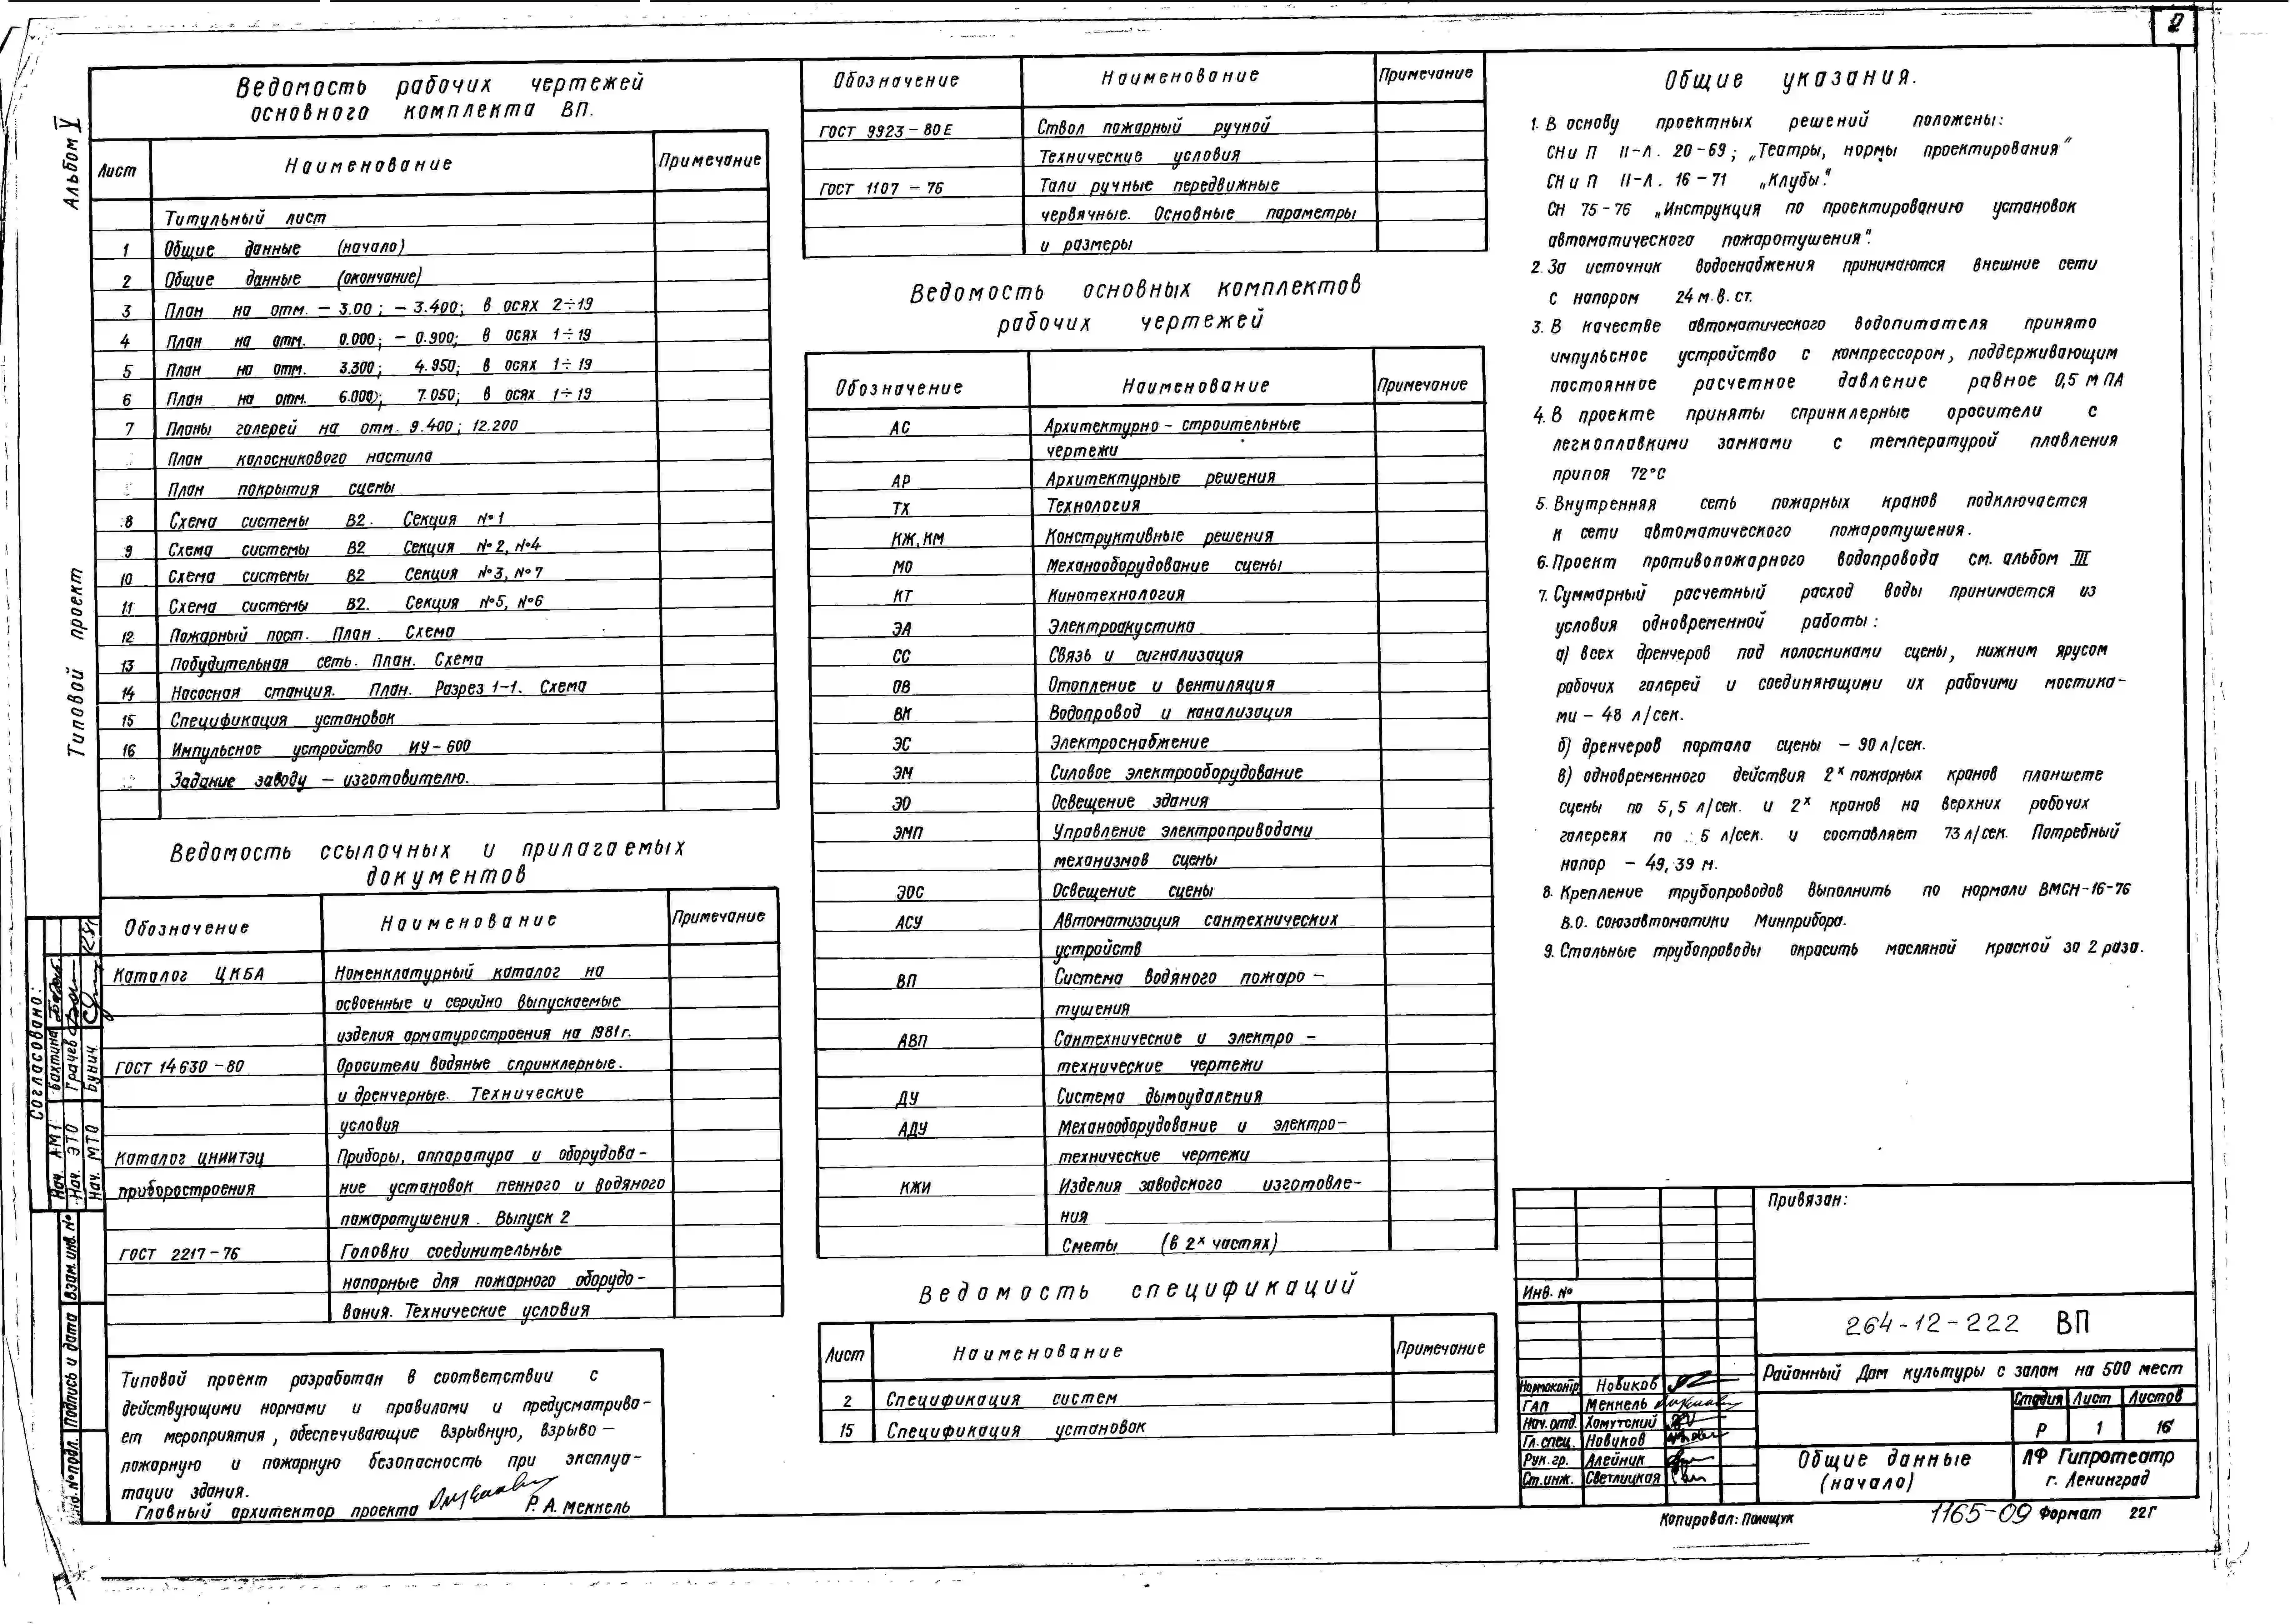 2
Альбом V
Типовой проект
Ведомость рабочих чертежей
основного комплекта ВП.
Лист Наименование Примечание
Титульный лист
1 Общие данные (начало)
2 Общие данные (окончание)
3 План на отм. – 3.00; – 3.400; в осях 2÷19
4 План на отм. 0.000; – 0.900; в осях 1÷19
5 План на отм. 3.300; 4.950; в осях 1÷19
6 План на отм. 6.000; 7.050; в осях 1÷19
7 Планы галерей на отм. 9.400; 12.200
План колосникового настила
План покрытия сцены
8 Схема системы В2. Секция №1
9 Схема системы В2 Секция №2, №4
10 Схема системы В2 Секция №3, №7
11 Схема системы В2. Секция №5, №6
12 Пожарный пост. План. Схема
13 Побудительная сеть. План. Схема
14 Насосная станция. План. Разрез 1-1. Схема
15 Спецификация установок
16 Импульсное устройство ИУ-600
Задание заводу – изготовителю.
Ведомость ссылочных и прилагаемых
документов
Обозначение Наименование Примечание
Каталог ЦКБА Номенклатурный каталог на
освоенные и серийно выпускаемые
изделия арматуростроения на 1981г.
ГОСТ 14630-80 Оросители водяные спринклерные.
и дренчерные. Технические
условия
Каталог ЦНИИТЭЦ Приборы, аппаратура и оборудова-
приборостроения ние установок пенного и водяного
пожаротушения. Выпуск 2
ГОСТ 2217-76 Головки соединительные
напорные для пожарного оборудо-
вания. Технические условия
Типовой проект разработан в соответствии с
действующими нормами и правилами и предусматрива-
ет мероприятия, обеспечивающие взрывную, взрыво-
пожарную и пожарную безопасность при эксплуа-
тации здания.
Главный архитектор проекта Р. А. Меккель
Согласовано:
Нач. АМ1 Бахтина
Нач. ЭТО Грачев
Нач. МТО Бунич
Взам. инв. №
Подпись и дата
Инв. № подл.
Обозначение Наименование Примечание
ГОСТ 9923-80Е Ствол пожарный ручной
Технические условия
ГОСТ 1107-76 Тали ручные передвижные
червячные. Основные параметры
и размеры
Ведомость основных комплектов
рабочих чертежей
Обозначение Наименование Примечание
АС Архитектурно-строительные
чертежи
АР Архитектурные решения
ТХ Технология
КЖ, КМ Конструктивные решения
МО Механооборудование сцены
КТ Кинотехнология
ЭА Электроакустика
СС Связь и сигнализация
ОВ Отопление и вентиляция
ВК Водопровод и канализация
ЭС Электроснабжение
ЭМ Силовое электрооборудование
ЭО Освещение здания
ЭМП Управление электроприводами
механизмов сцены
ЭОС Освещение сцены
АСУ Автоматизация сантехнических
устройств
ВП Система водяного пожаро-
тушения
АВП Сантехнические и электро-
технические чертежи
ДУ Система дымоудаления
АДУ Механооборудование и электро-
технические чертежи
КЖИ Изделия заводского изготовле-
ния
Сметы (в 2х частях)
Ведомость спецификаций
Лист Наименование Примечание
2 Спецификация систем
15 Спецификация установок
Общие указания.
1. В основу проектных решений положены:
СНиП II-Л. 20-69; „Театры, нормы проектирования"
СНиП II-Л. 16-71 „Клубы."
СН 75-76 „Инструкция по проектированию установок
автоматического пожаротушения".
2. За источник водоснабжения принимаются внешние сети
с напором 24 м. в. ст.
3. В качестве автоматического водопитателя принято
импульсное устройство с компрессором, поддерживающим
постоянное расчетное давление равное 0,5 МПА
4. В проекте приняты спринклерные оросители с
легкоплавкими замками с температурой плавления
припоя 72°С
5. Внутренняя сеть пожарных кранов подключается
к сети автоматического пожаротушения.
6. Проект противопожарного водопровода см. альбом III
7. Суммарный расчетный расход воды принимается из
условия одновременной работы:
а) всех дренчеров под колосниками сцены, нижним ярусом
рабочих галерей и соединяющими их рабочими мостика-
ми – 48 л/сек.
б) дренчеров портала сцены – 90 л/сек.
в) одновременного действия 2х пожарных кранов планшете
сцены по 5,5 л/сек. и 2х кранов на верхних рабочих
галереях по 5 л/сек. и составляет 73 л/сек. Потребный
напор – 49,39 м.
8. Крепление трубопроводов выполнить по нормали ВМСН-16-76
В.О. Союзавтоматики Минприбора.
9. Стальные трубопроводы окрасить масляной краской за 2 раза.
Привязан:
Инв. №
264-12-222 ВП
Районный Дом культуры с залом на 500 мест
Нормоконтр Новиков
ГАП Меккель
Нач. отд. Хомутский
Гл. спец. Новиков
Рук. гр. Алейник
Ст. инж. Светлицкая
Стадия Лист Листов
Р 1 16
Общие данные
(начало)
ЛФ Гипротеатр
г. Ленинград
Копировал: Полищук 1165-09 Формат 22Г